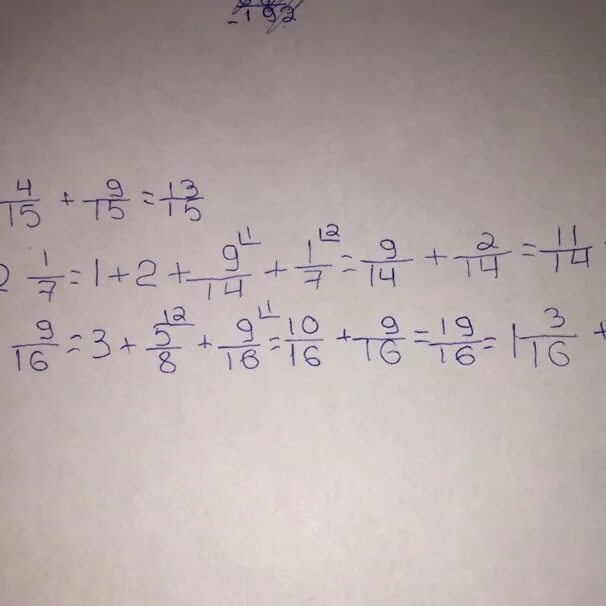 -192
4/15 + 9/15 = 13/15
2 1/7 = 1 + 2 + 9/14 + 1/7 = 9/14 + 2/14 = 11/14 +
9/16 = 3 + 5/8 + 9/16 = 10/16 + 9/16 = 19/16 = 1 3/16 +